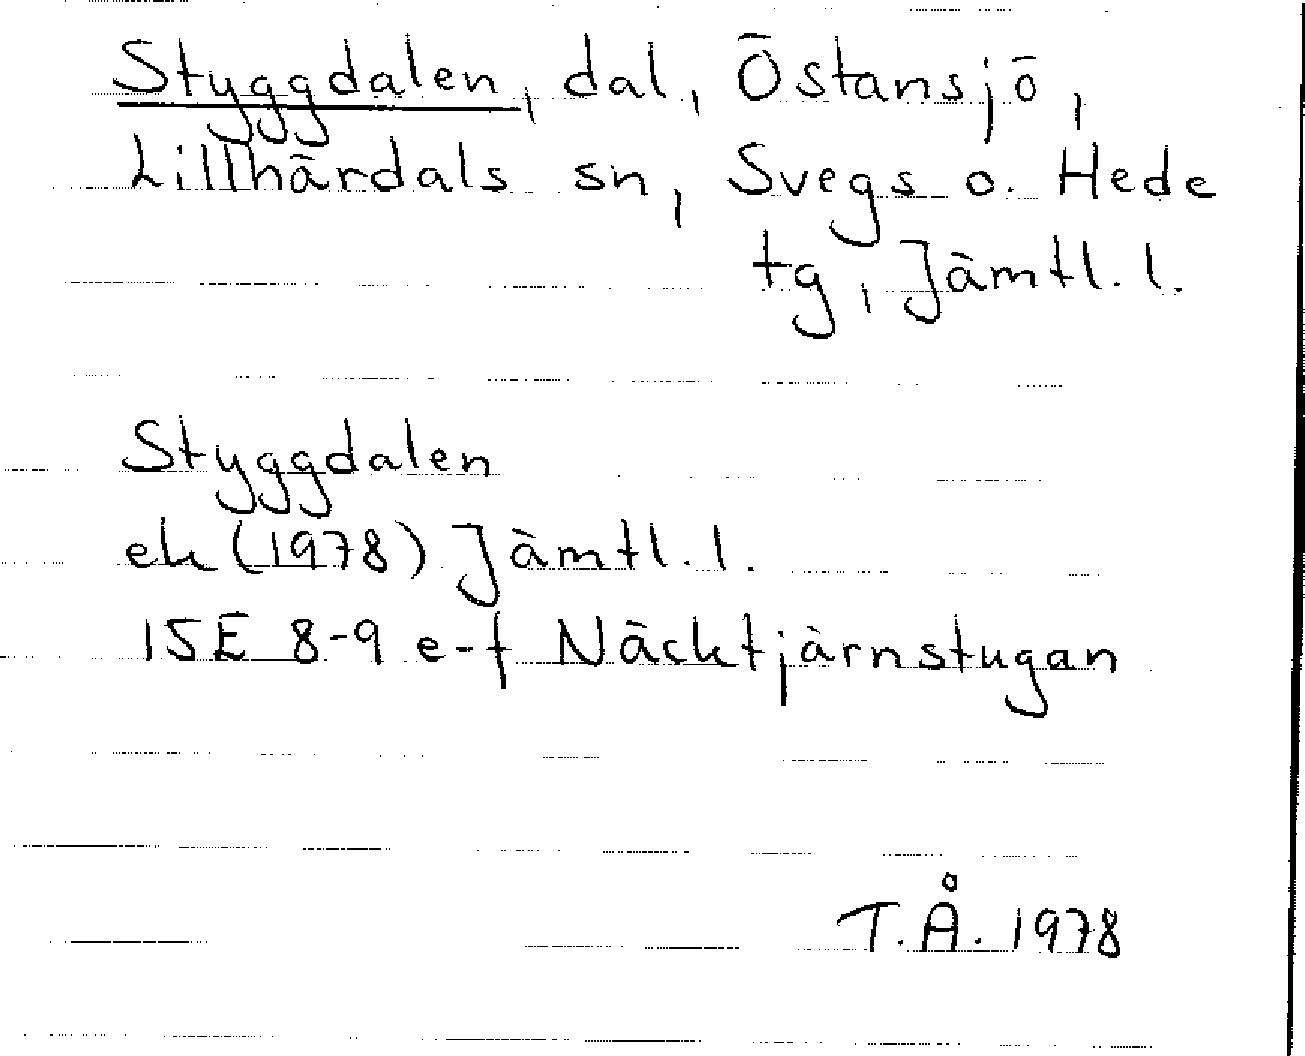 Styggdalen, dal, Östansjö,
Lillhärdals sn, Svegs o. Hede
tg, Jämtl. l.
Styggdalen
ek (1978) Jämtl. l.
15E 8-9 e-f Näcktjärnstugan
T.Å. 1978